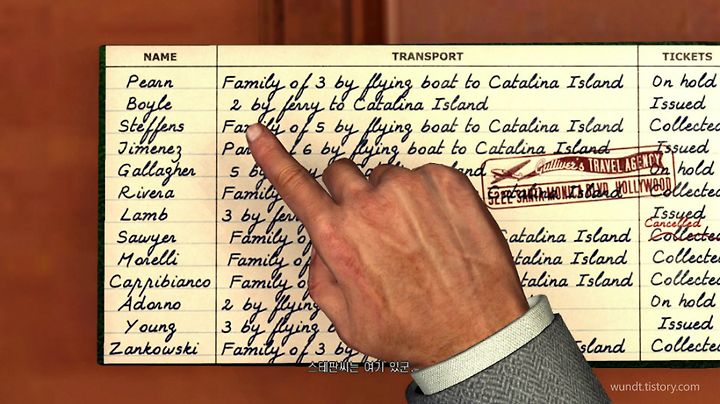 NAME TRANSPORT TICKETS
Pearn Family of 3 by flying boat to Catalina Island On hold
Boyle 2 by ferry to Catalina Island Issued
Steffens Family of 5 by flying boat to Catalina Island Collected
Jimenez 6 by flying boat to Catalina Island Issued
Gallagher 5 On hold
Rivera Family Catalina Island Collected
Gulliver's TRAVEL AGENCY
5222 SANTA MONICA BLVD. HOLLYWOOD
Lamb 3 by Issued
Cancelled
Sawyer Family Catalina Island Collected
Morelli Family of Catalina Island Collected
Cappibianco Family Catalina Island Collected
Adorno 2 by flying On hold
Young 3 by flying Issued
Zankowski Family of 3 by Island Collected
스테판씨는 여기 있군.
wundt.tistory.com